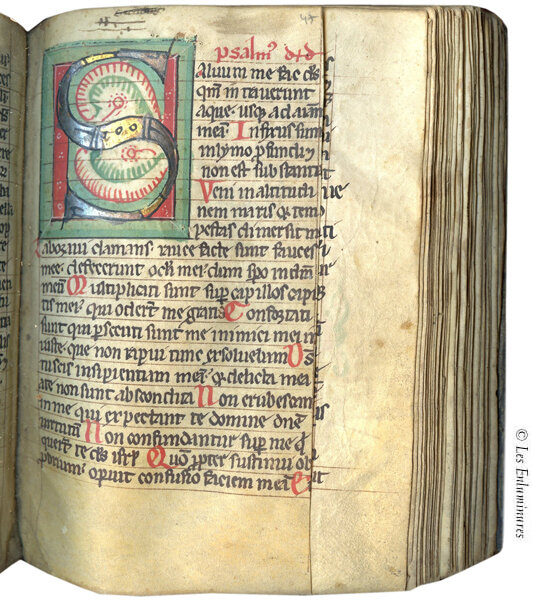 psalm' d+d
S aluum me fac ds
qm intrauerunt
aque. usque ad aiam
meā. Infixus sum
in lymo pfundi ⁊
non est substantia
Veni in altitudi
nem maris ⁊ temp
pestas dimersit
laboraui clamans rauce facte sunt fauces
mee. defecerunt oculi mei. dum spo in dm
meū Multiplicati sunt sup capillos capi
tis mei. qui oderūt me gratis Confortati
sunt qui psecuti sunt me inimici mei in
iuste. que non rapui tunc exsoluebam Ds
tu scis insipientiam meā ⁊ delicta mea
a te non sunt abscondita Non erubescant
in me qui expectant te domine dne
uirtutum Non confundantur sup me q
querūt te ds isrl Quō ppter sustinui ob
pbrium. operuit confusio faciem meā E
© Les Enluminures